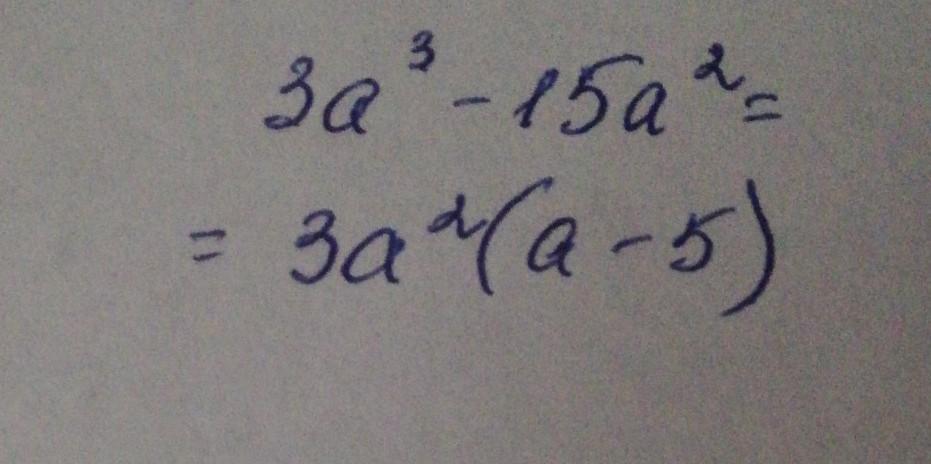 3a³ - 15a² =
= 3a²(a - 5)